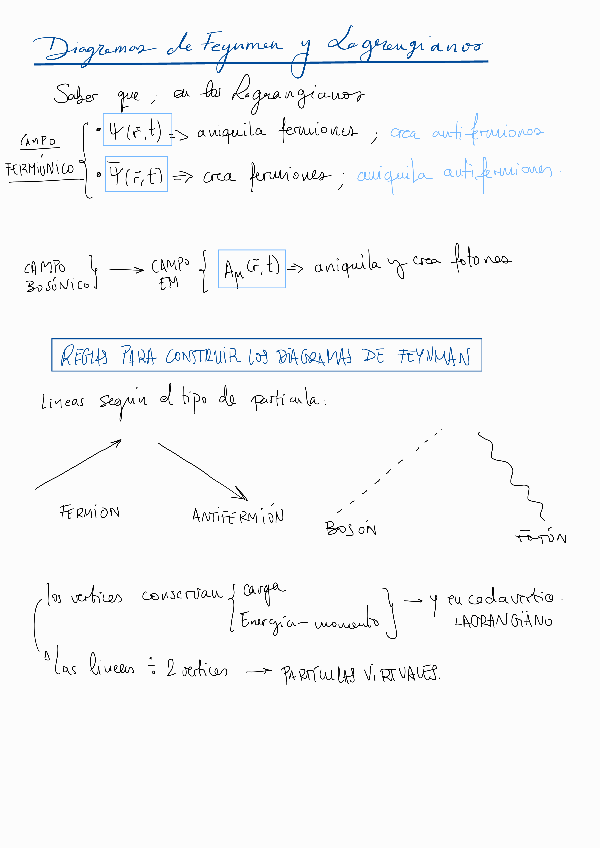 Diagramas de Feynman y Lagrangianos
Saber que, en los Lagrangianos
CAMPO FERMIÓNICO
• Ψ(r̄,t) => aniquila fermiones ; crea antifermiones
• Ψ̄(r̄,t) => crea fermiones ; aniquila antifermiones.
CAMPO BOSÓNICO } → CAMPO EM { Aμ(r̄,t) => aniquila y crea fotones
REGLAS PARA CONSTRUIR LOS DIAGRAMAS DE FEYNMAN
Lineas según el tipo de partícula.
FERMION ANTIFERMIÓN BOSÓN FOTÓN
los vertices conservan { carga
Energía-momento } → y en cada vertice
LAGRANGIANO
Las lineas ÷ 2 vertices → PARTÍCULAS VIRTUALES.